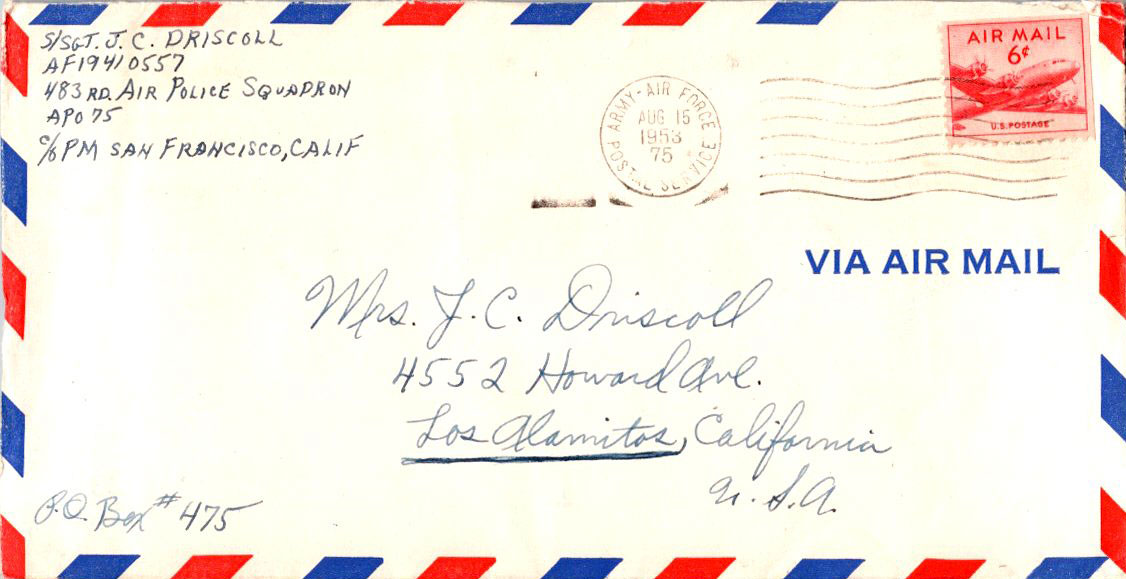 S/SGT. J. C. DRISCOLL
AF19410557
483RD. AIR POLICE SQUADRON
APO 75
c/o PM SAN FRANCISCO, CALIF
ARMY-AIR FORCE
AUG 15
1953
75
POSTAL SERVICE
AIR MAIL
6¢
U.S. POSTAGE
VIA AIR MAIL
Mrs. J. C. Driscoll
4552 Howard Ave.
Los Alamitos, California
U. S. A.
P.O. Box # 475